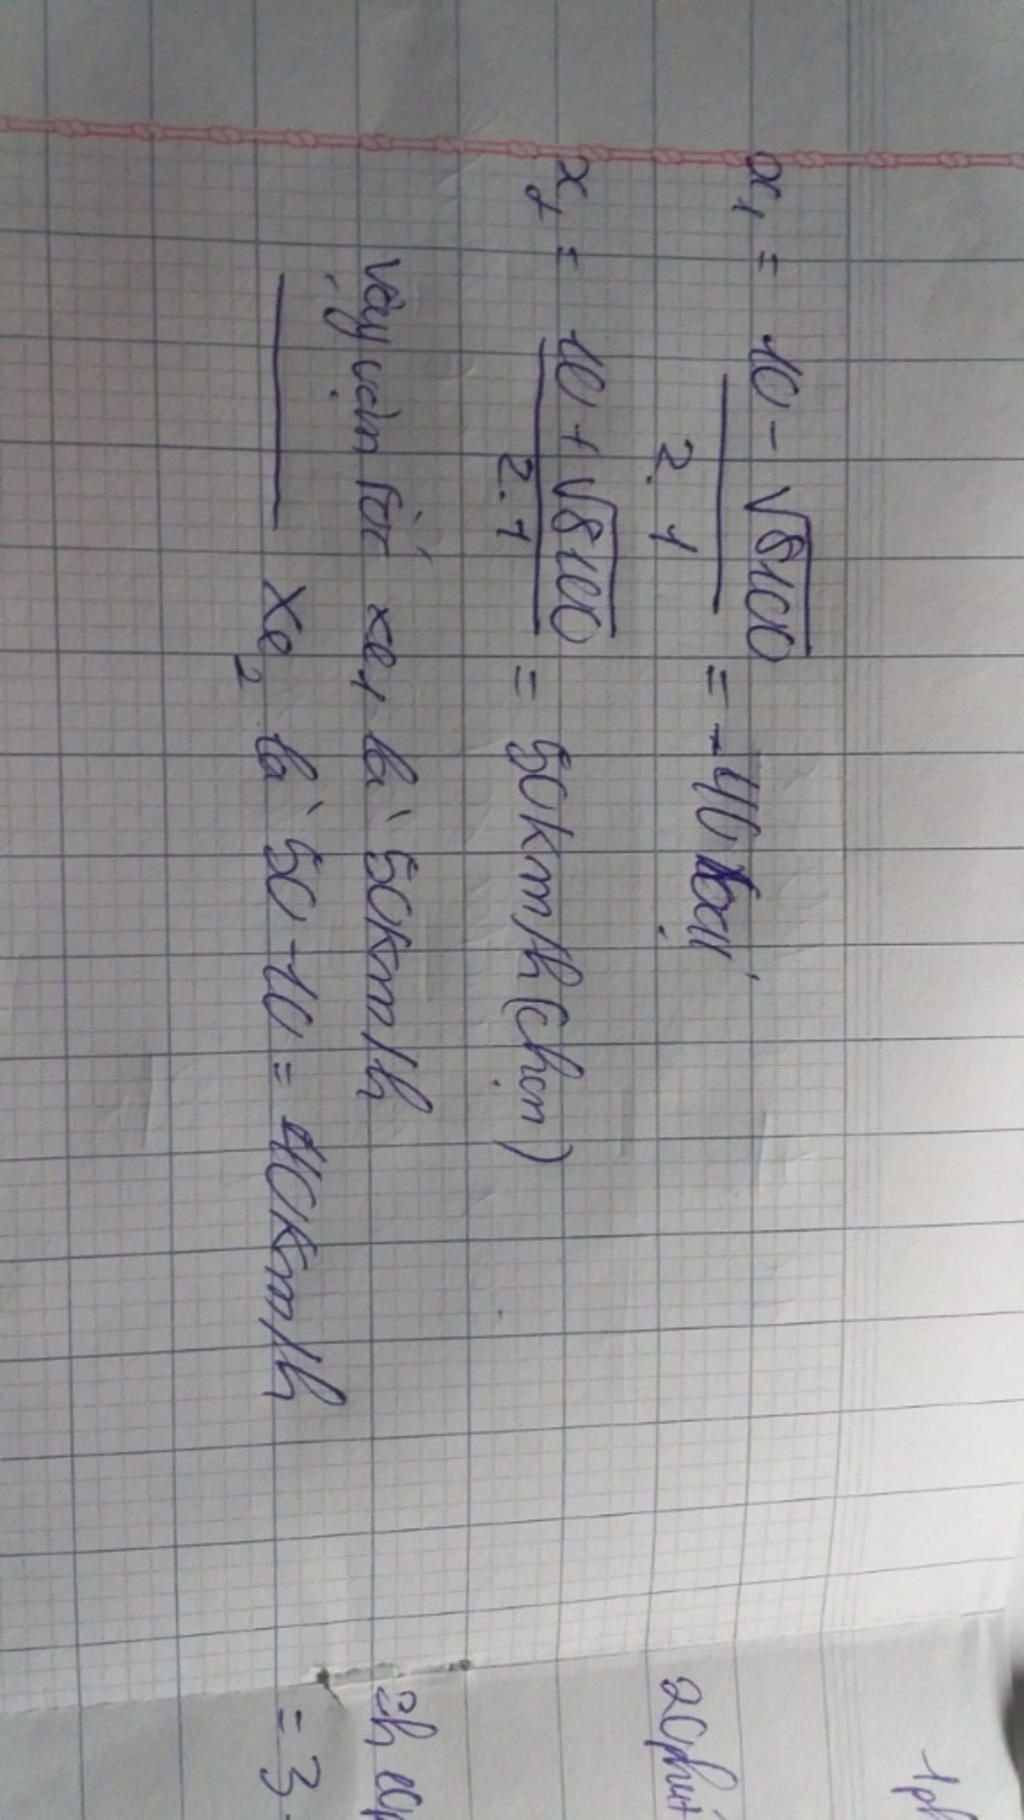 x₁ = (10 - √8100)/(2.1) = -40 loại
x₂ = (10 + √8100)/(2.1) = 50km/h (chọn)
Vậy vận tốc xe₁ là 50km/h
——— xe₂ là 50 - 10 = 40km/h
1ph
20phút
3h
= 3